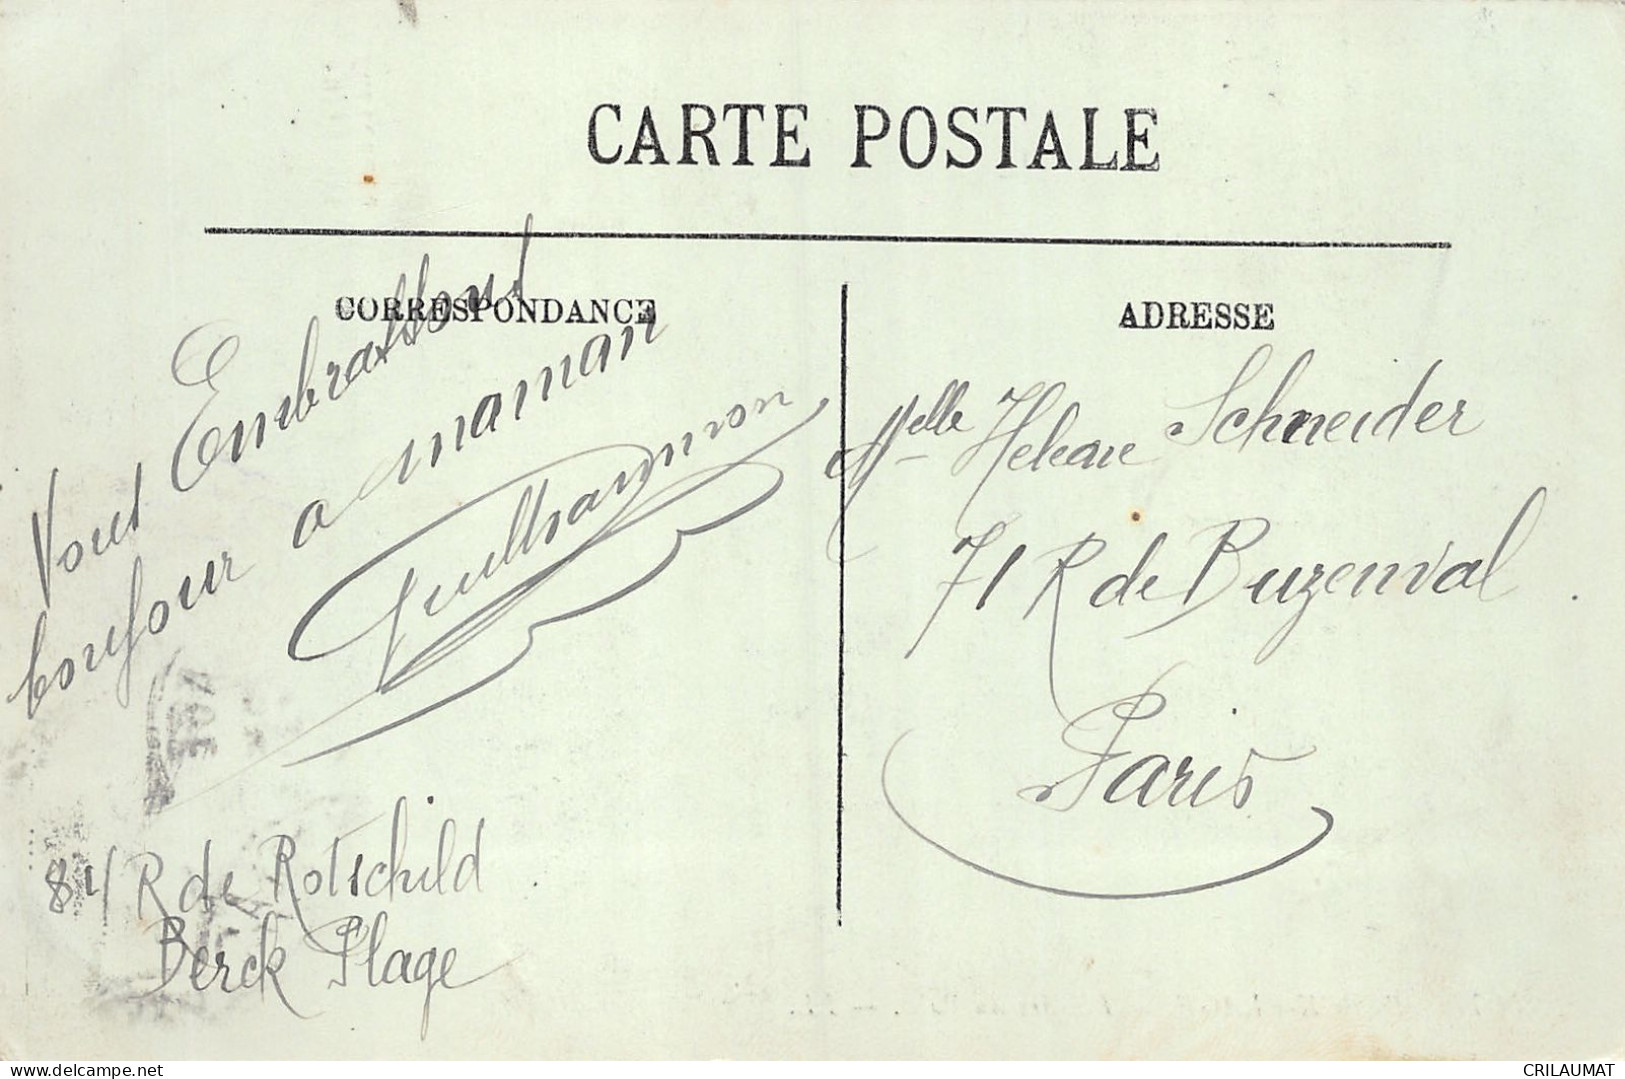 CARTE POSTALE
CORRESPONDANCE
Vous Embrassons
bonjour a maman
84 R de Rotschild
Berck Plage
ADRESSE
Melle Helene Schneider
71 R de Buzenval
Paris
delcampe.net
CRILAUMAT